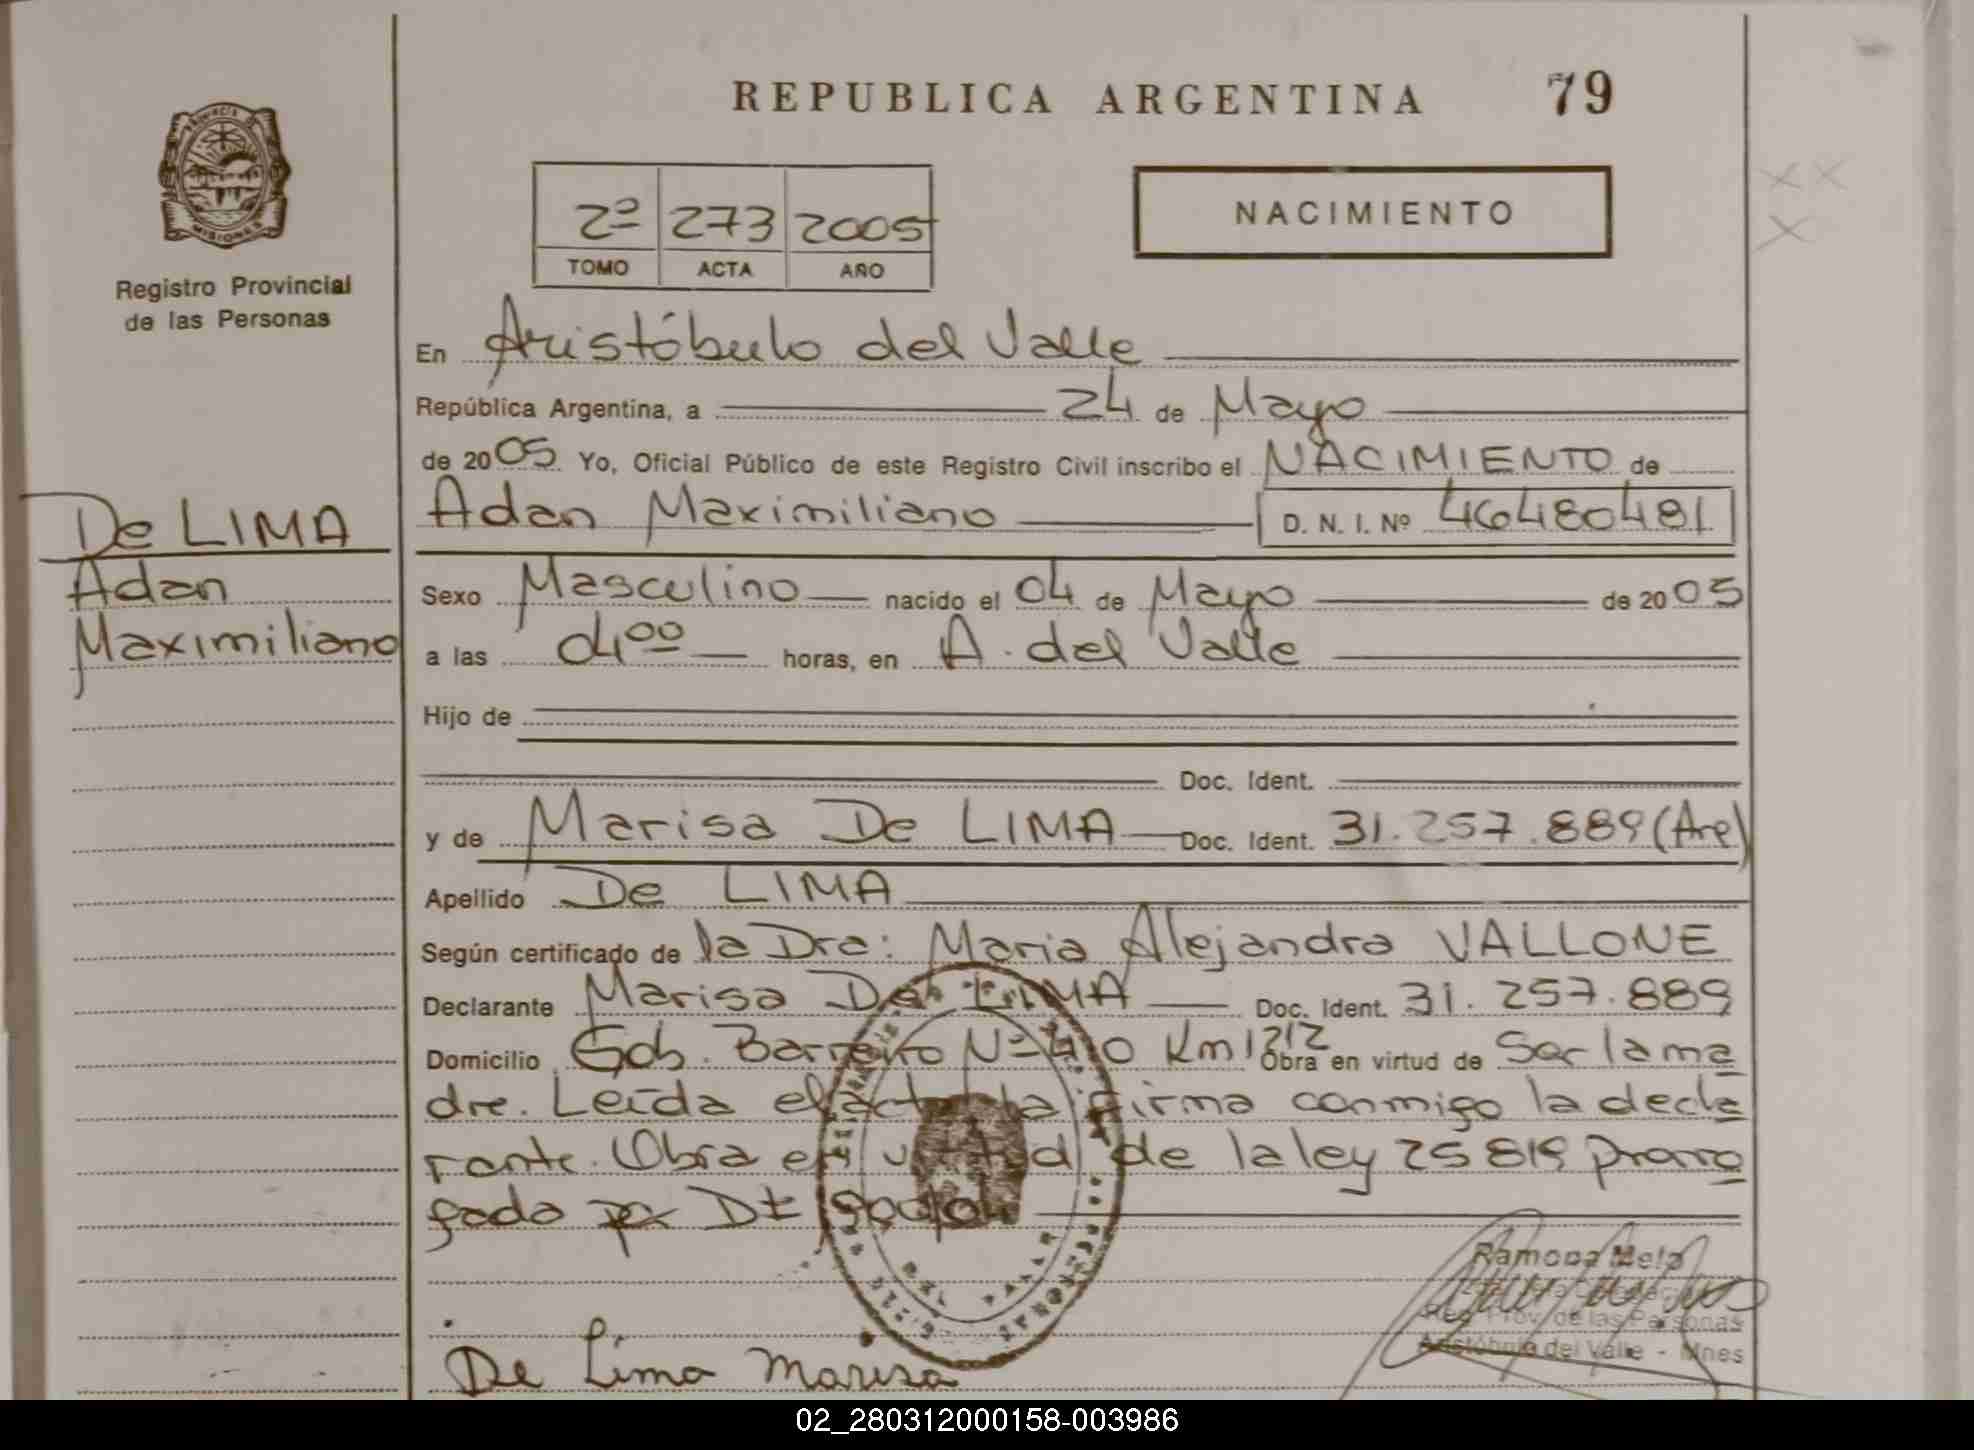 REPUBLICA ARGENTINA 79
PROVINCIA DE
MISIONES
Registro Provincial
de las Personas
2º 273 2005
TOMO ACTA AÑO
NACIMIENTO
En Aristóbulo del Valle
República Argentina, a 24 de Mayo
de 2005 Yo, Oficial Público de este Registro Civil inscribo el NACIMIENTO de
De LIMA
Adan
Maximiliano
Adan Maximiliano D. N. I. Nº 46480481
Sexo Masculino nacido el 04 de Mayo de 2005
a las 04⁰⁰ horas, en A. del Valle
Hijo de
Doc. Ident.
y de Marisa De LIMA Doc. Ident. 31.257.889 (Arg)
Apellido De LIMA
Según certificado de la Dra: Maria Alejandra VALLONE
Declarante Marisa De LIMA Doc. Ident. 31.257.889
Domicilio Gob. Barreyro Nº Km 1212 Obra en virtud de Ser la ma
dre. Leída el acta la firma conmigo la decla
rante. Obra en virtud de la ley 25819 prorro
gada por Dt
De Lima Marisa
Ramona Melo
Reg. Prov. de las Personas
Aristóbulo del Valle - Mnes
02_280312000158-003986